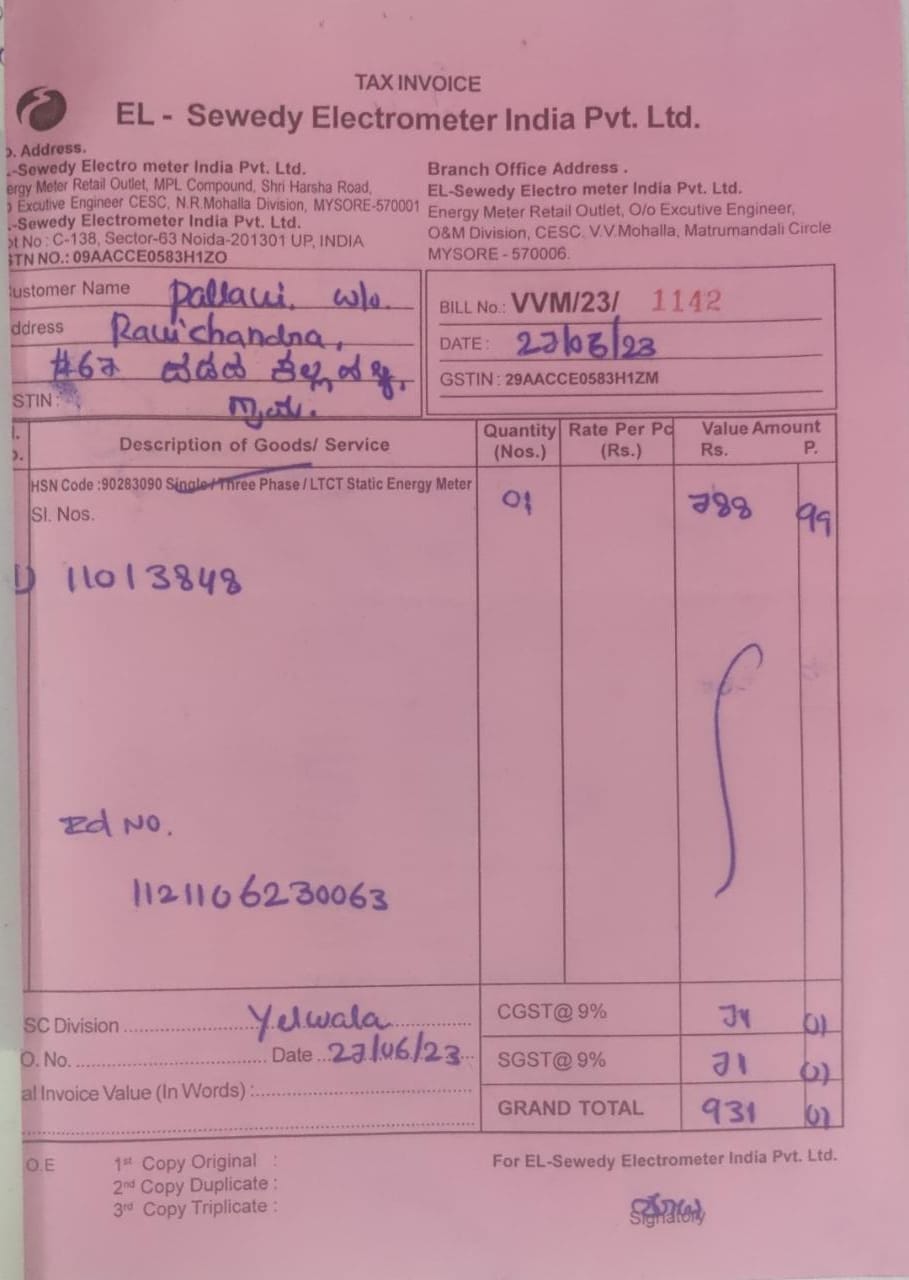 TAX INVOICE
EL - Sewedy Electrometer India Pvt. Ltd.
. Address.
-Sewedy Electro meter India Pvt. Ltd.
ergy Meter Retail Outlet, MPL Compound, Shri Harsha Road,
Excutive Engineer CESC, N.R.Mohalla Division, MYSORE-570001
-Sewedy Electrometer India Pvt. Ltd.
ot No : C-138, Sector-63 Noida-201301 UP, INDIA
STN NO.: 09AACCE0583H1ZO
Branch Office Address .
EL-Sewedy Electro meter India Pvt. Ltd.
Energy Meter Retail Outlet, O/o Excutive Engineer,
O&M Division, CESC, V.V.Mohalla, Matrumandali Circle
MYSORE - 570006.
ustomer Name Pallavi. w/o.
ddress Ravichandra,
#67
STIN :
BILL No.: VVM/23/ 1142
DATE : 27/06/23
GSTIN : 29AACCE0583H1ZM
Description of Goods/ Service Quantity (Nos.) Rate Per Pc (Rs.) Value Amount Rs. P.
HSN Code :90283090 Single / Three Phase / LTCT Static Energy Meter 01 788 99
Sl. Nos.
1) 11013848
Id NO.
1121106230063
SC Division Yelwala CGST@ 9% 71 01
O. No. Date 27/06/23 SGST@ 9% 71 01
al Invoice Value (In Words) : GRAND TOTAL 931 01
O.E 1st Copy Original :
2nd Copy Duplicate :
3rd Copy Triplicate :
For EL-Sewedy Electrometer India Pvt. Ltd.
Signatory